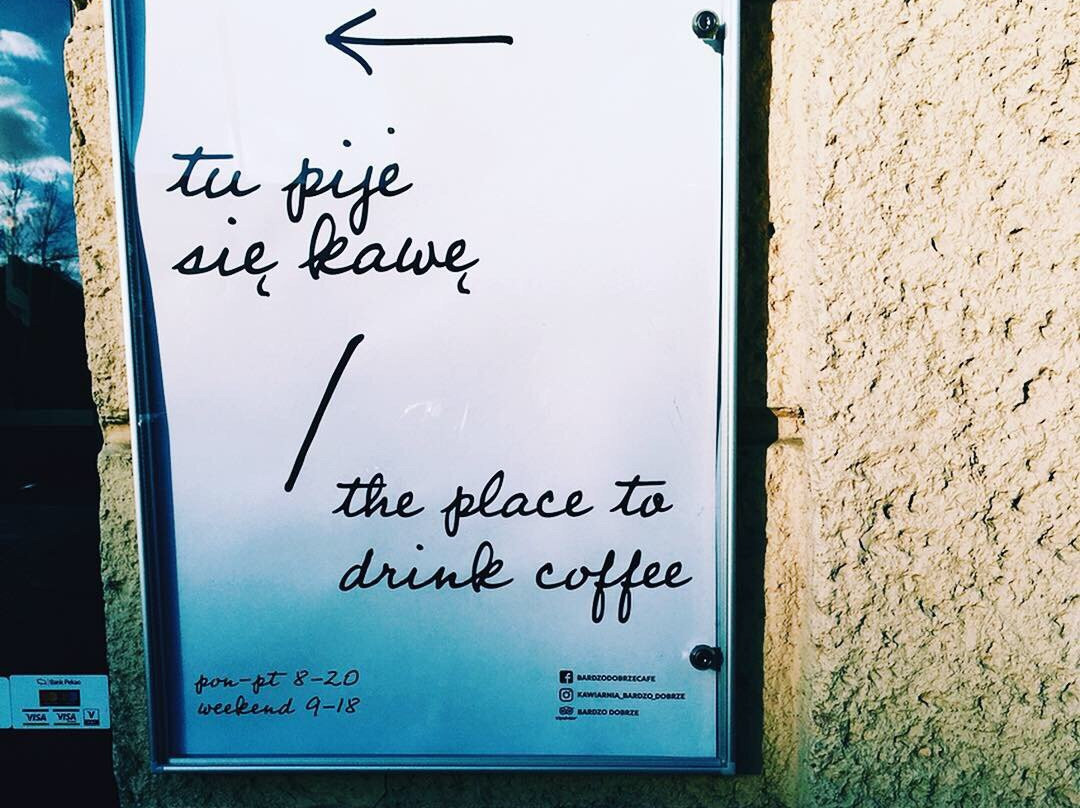 tu pije
się kawę
/
the place to
drink coffee
pon-pt 8-20
weekend 9-18
BARDZODOBRZECAFE
KAWIARNIA_BARDZO_DOBRZE
BARDZO DOBRZE
Bank Pekao
VISA VISA V